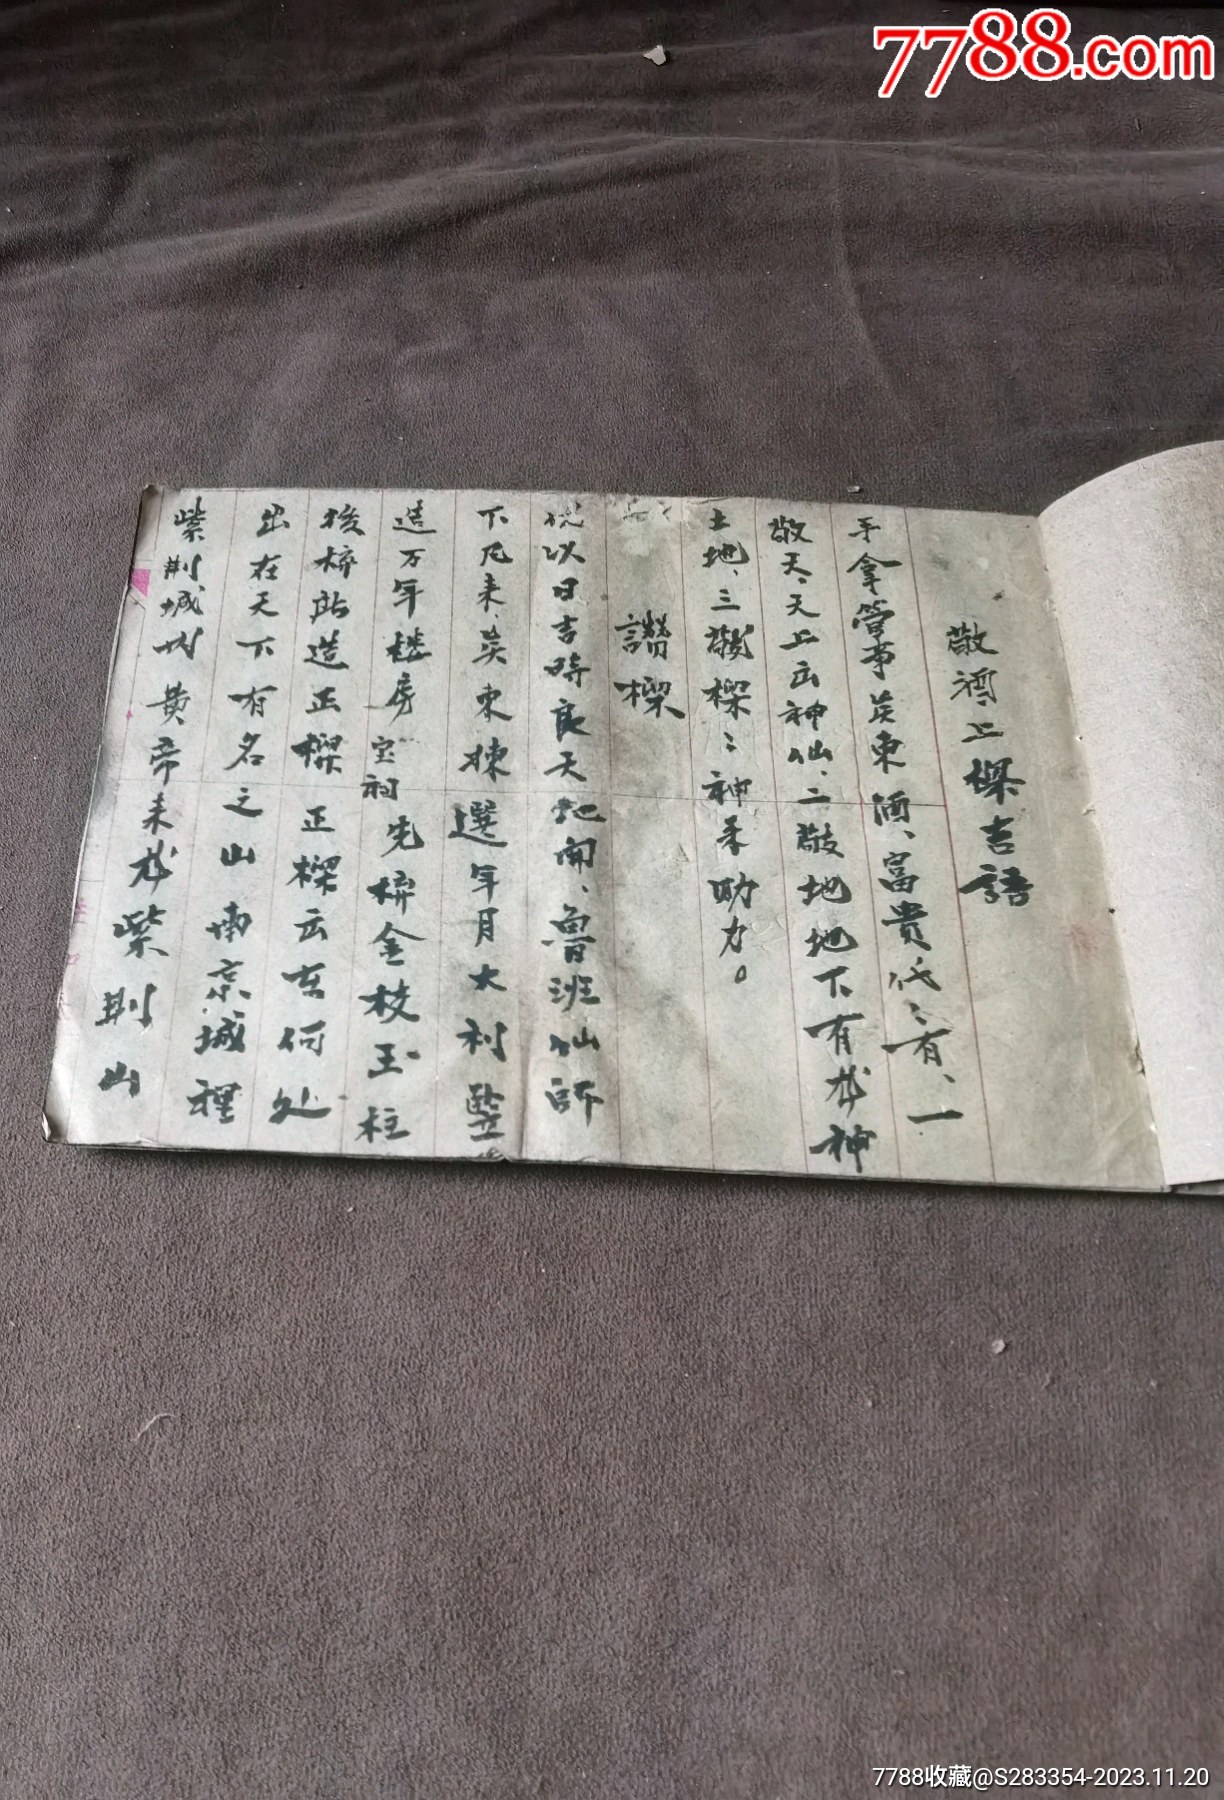 7788.com
敬酒上樑吉語
手拿管事英東酒、富貴代〻有、一
敬天、天上出神仙、二敬地地地下有感神
土地、三敬樑〻神來助力。
讚樑
以日吉時良天地開、魯班仙師
下凡來、英東揀選年月大利竪
造万年楼房宝祠先梹金枝玉柱
後梹跕造正樑正樑云在何处
出在天下有名之山南京城裡
紫荆城内黄帝来 紫荆山
7788收藏@S283354-2023.11.20